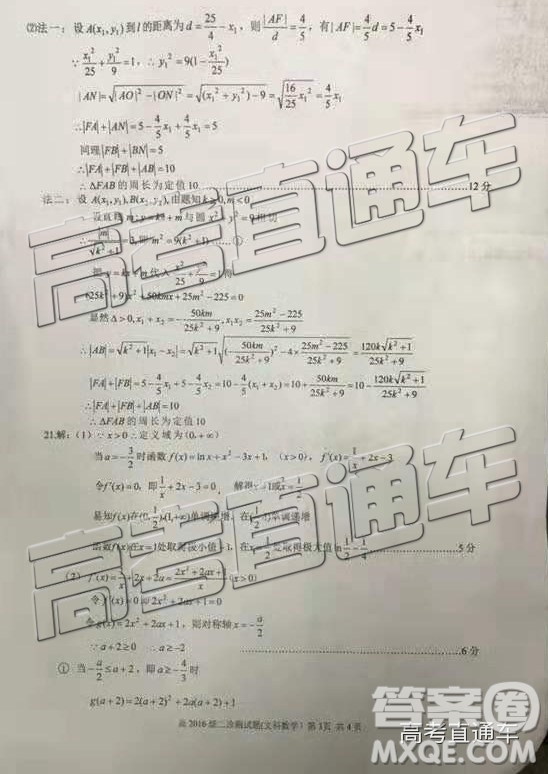 ⑵法一：设 A(x₁,y₁) 到 l 的距离为 d = 25/4 − x₁，则 |AF|/d = 4/5，有|AF| = 4/5 d = 5 − 4/5 x₁
∵ x₁²/25 + y₁²/9 = 1，∴ y₁² = 9(1 − x₁²/25)
|AN| = √(|AO|² − |ON|²) = √((x₁² + y₁²) − 9) = √(16/25 x₁²) = 4/5 x₁
∴|FA|+|AN| = 5 − 4/5 x₁ + 4/5 x₁ = 5
同理|FB|+|BN| = 5
∴|FA|+|FB|+|AB| = 10
∴ΔFAB 的周长为定值 10 ……12 分
法二：设 A(x₁,y₁),B(x₂,y₂),由题知k>0,m<0,
y = kx + m 与圆 x² + y² = 9 相切
√(k²+1) = 3,即 m² = 9(k²+1) ……①
y = kx + m 代入 x²/25 + y²/9 = 1
(25k²+9)x² + 50kmx + 25m² − 225 = 0
显然 Δ>0, x₁ + x₂ = − 50km/(25k²+9), x₁x₂ = (25m² − 225)/(25k²+9)
∴|AB| = √(k²+1)|x₁ − x₂| = √(k²+1)√((− 50km/(25k²+9))² − 4×(25m² − 225)/(25k²+9)) = 120k√(k²+1)/(25k²+9)
|FA|+|FB| = 5 − 4/5 x₁ + 5 − 4/5 x₂ = 10 − 4/5 (x₁ + x₂) = 10 + 50km/(25k²+9) = 10 − 120k√(k²+1)/(25k²+9)
∴|FA|+|FB|+|AB| = 10
∴ΔFAB 的周长为定值 10
21.解:（1）∵ x > 0 ∴定义域为(0,+∞)
当a = − 3/2 时函数 f(x) = ln x + x² − 3x + 1,（x>0）, f'(x) = 1/x + 2x − 3,
令f'(x) = 0, 即 1/x + 2x − 3 = 0, 解得x = 1或x = 1/2
易知f(x)在(0,1/2),(1,+∞)单调递增，在(1/2,1)单调递增
函数f(x)在x = 1处取得极小值 −1, 在x = 1/2处取得极大值 ln 1/2 − 1/4 ……5 分
（2）f'(x) = 1/x + 2x + 2a = (2x² + 2ax + 1)/x (x>0)
令f'(x) = 0 2x² + 2ax + 1 = 0
令g(x) = 2x² + 2ax + 1，则对称轴x = − a/2
∵ a + 2 ≥ 0 ∴ a ≥ −2 ……6 分
① 当 − a/2 ≤ a + 2，即a ≥ − 4/3 时
g(a+2) = 2(a+2)² + 2a² + 1
高 2016 级二诊测试题(文科数学）第 3页 共 4 页
高考直通车
高考直通车
高考直通车
高考直通车
MXQE.COM